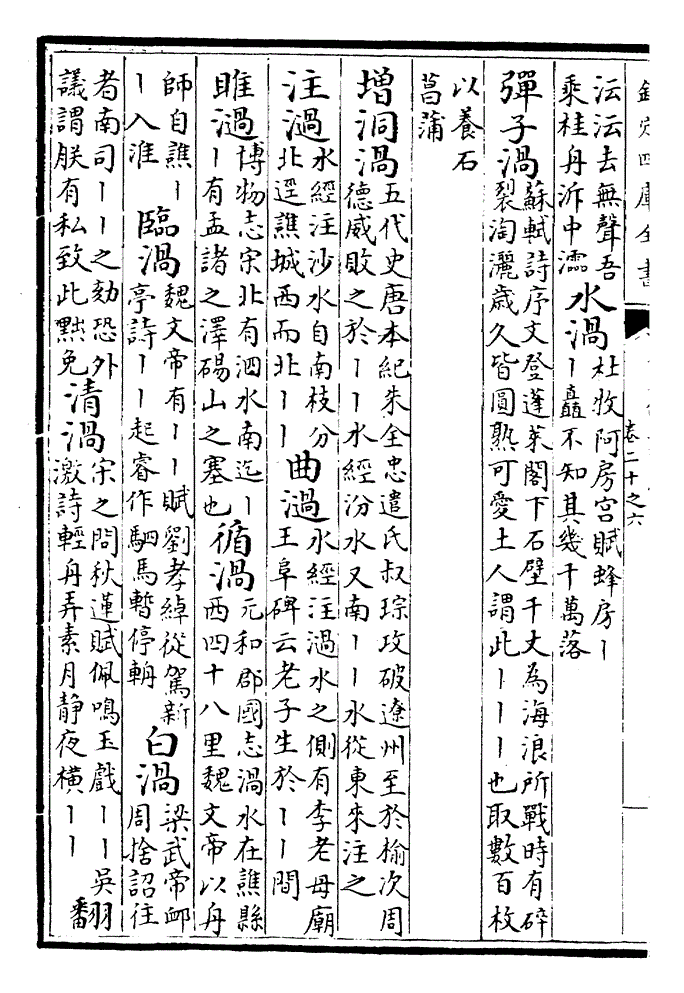 欽定四庫全書
卷二十之六
沄沄去無聲吾
乘桂舟泝中濡
水渦
杜牧阿房宮賦蜂房丨
丨矗不知其幾千萬落
彈子渦
蘇軾詩序文登蓬萊閣下石壁千丈為海浪所戰時有碎
裂淘灑歲久皆圓熟可愛土人謂此丨丨丨也取數百枚
以養石
菖蒲
增洞渦
五代史唐本紀朱全忠遣氏叔琮攻破遼州至於榆次周
德威敗之於丨丨水經汾水又南丨丨水從東來注之
注濄
水經注沙水自南枝分
北逕譙城西而北丨丨
曲濄
水經注濄水之側有李老母廟
王阜碑云老子生於丨丨間
睢濄
博物志宋北有泗水南迄丨
丨有孟諸之澤碭山之塞也
循渦
元和郡國志渦水在譙縣
西四十八里魏文帝以舟
師自譙丨
丨入淮
臨渦
魏文帝有丨丨賦劉孝綽從駕新
亭詩丨丨起睿作駟馬暫停輈
白渦
梁武帝卹
周捨詔往
者南司丨丨之劾恐外
議謂朕有私致此黜免
清渦
宋之問秋蓮賦佩鳴玉戲丨丨吳
激詩輕舟弄素月靜夜橫丨丨
翻